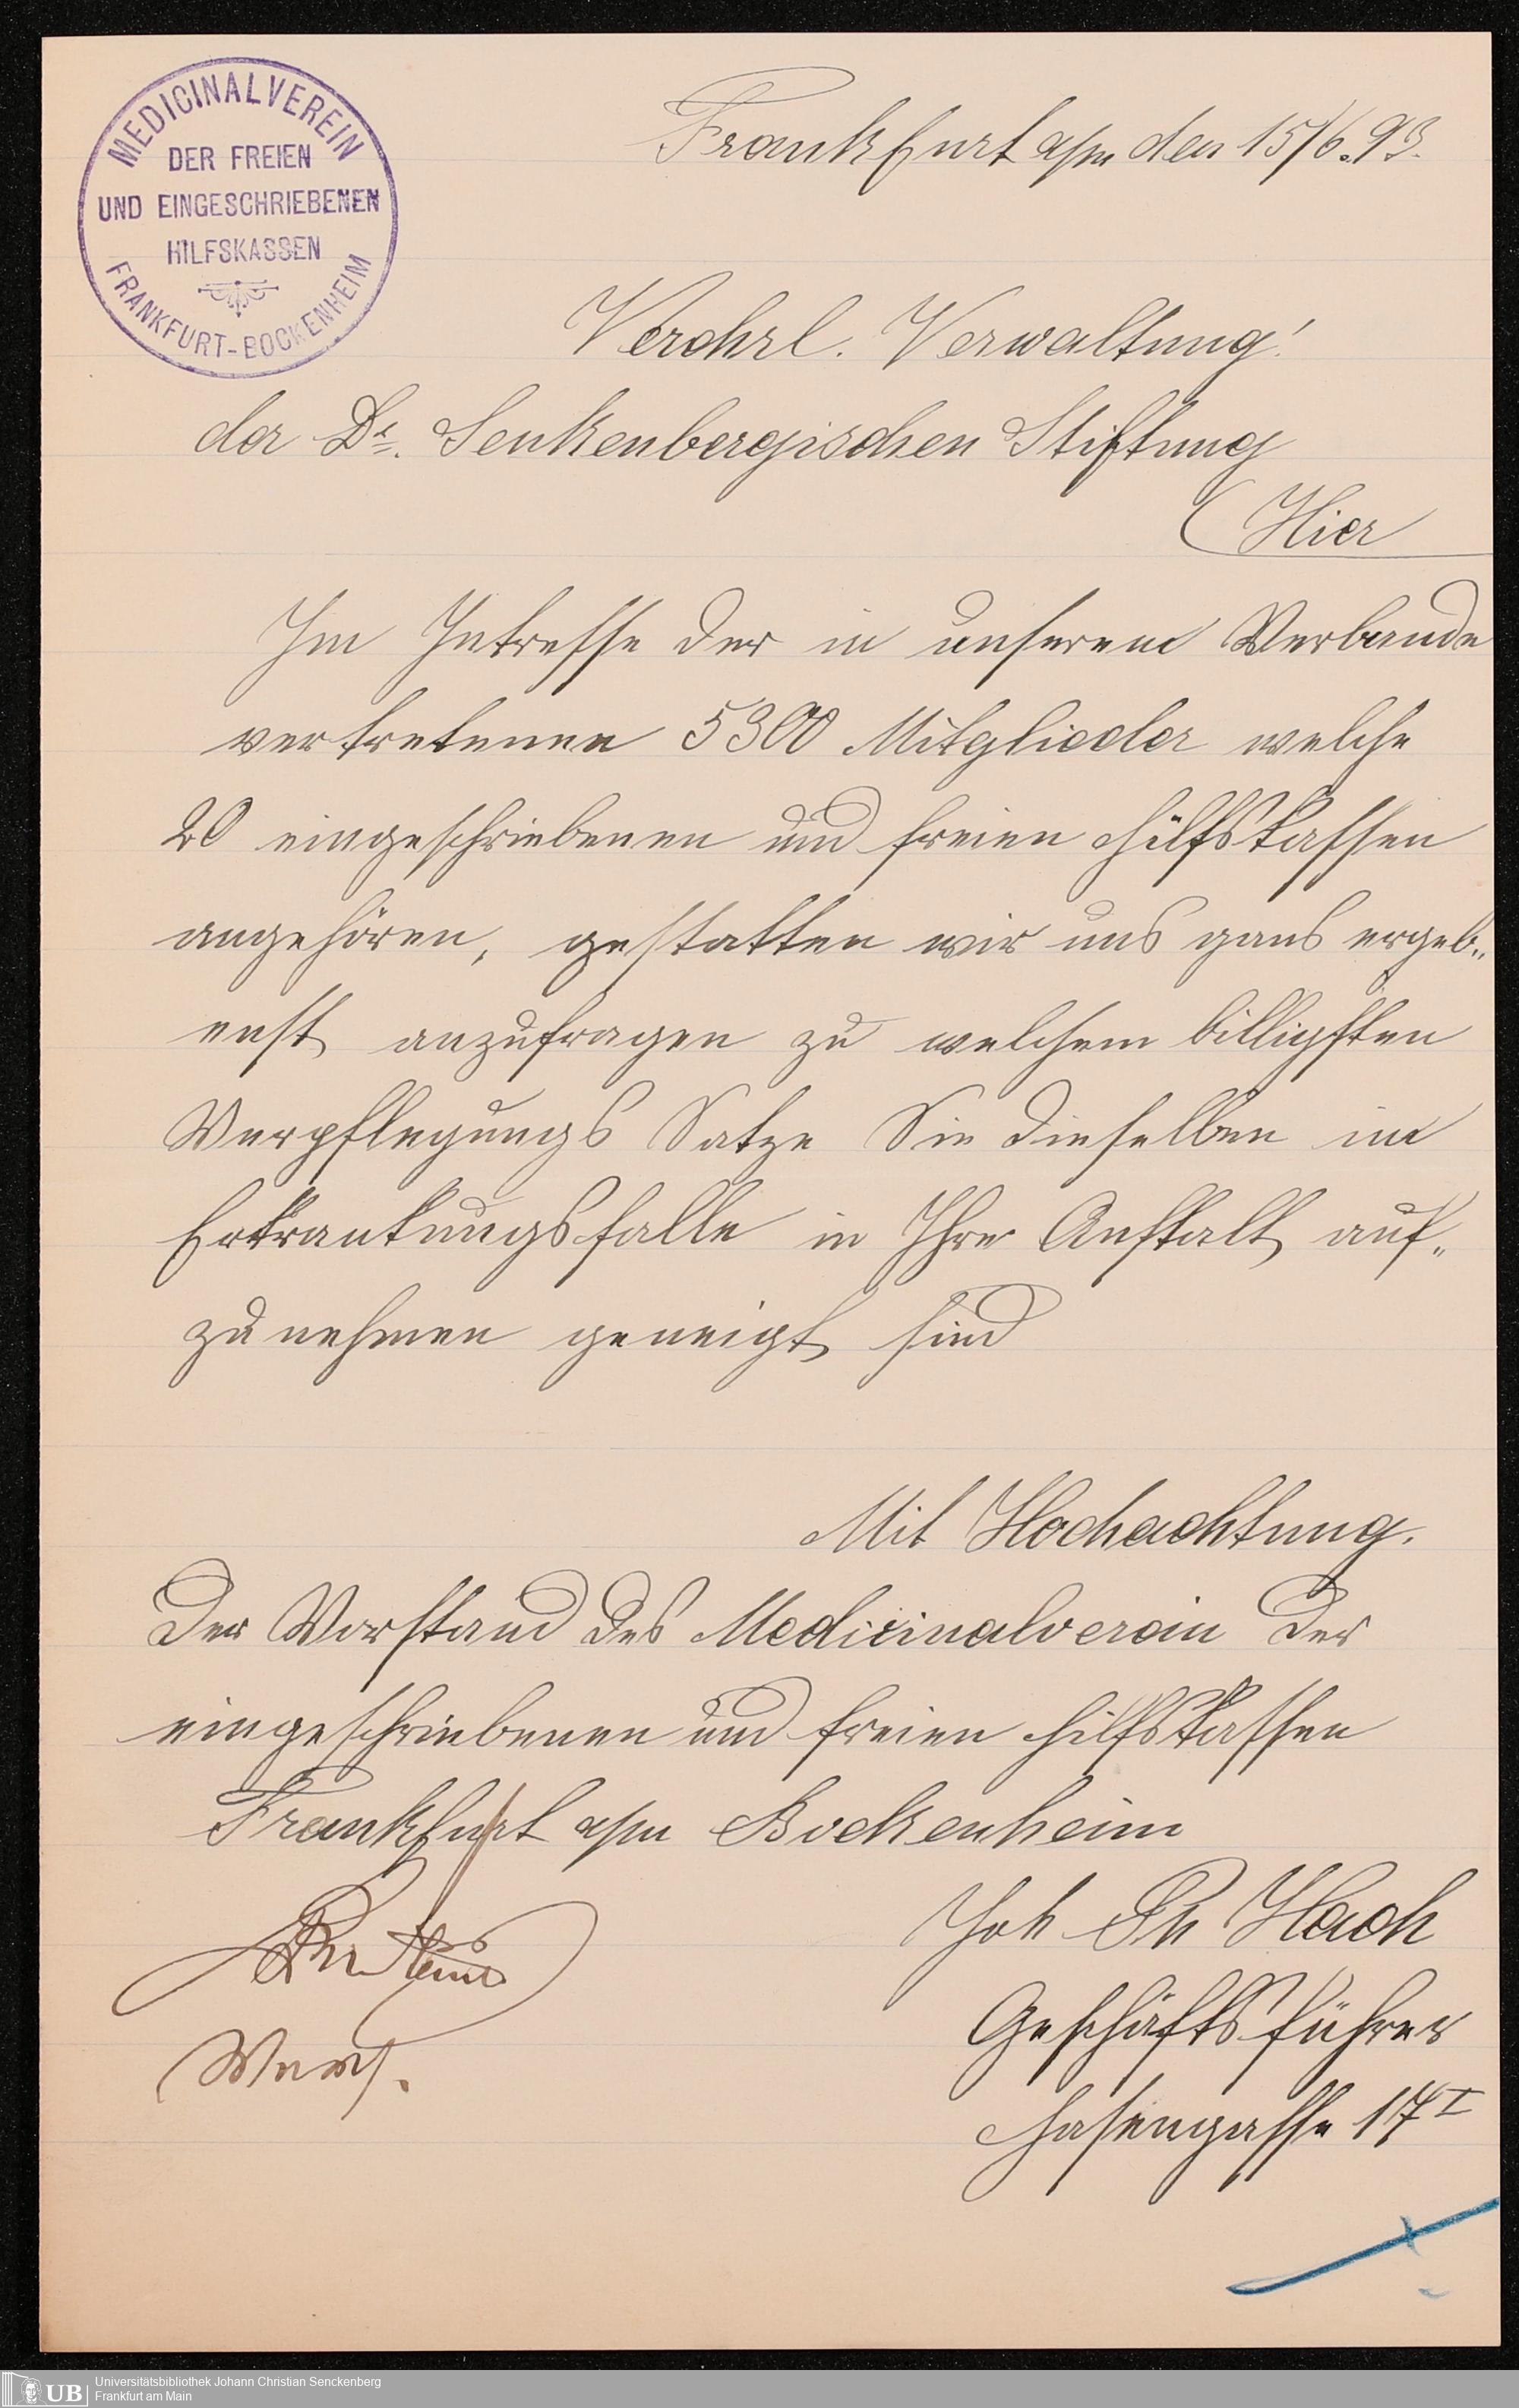 MEDICINALVEREIN
DER FREIEN
UND EINGESCHRIEBENEN
HILFSKASSEN
FRANKFURT-BOCKENHEIM
Frankfurt a/m den 15/6. 93.
Verehrl. Verwaltung!
der Dr. Senkenbergischen Stiftung
Hier
Im Intresse der in unserem Verbande
vertretenen 5300 Mitglieder welche
20 eingeschriebenen und freien Hilfskassen
angehören, gestatten wir uns ganz ergeb„
enst anzufragen zu welchem billigsten
Verpflegungs Satze Sie dieselben im
Erkrankungsfalle in Ihrer Anstalt auf„
zu nehmen geneigt sind
Mit Hochachtung.
Der Vorstand des Medicinalverein der
eingeschriebenen und freien Hilfskassen
Frankfurt a/m Bockenheim
Joh Ph Hach
Geschäftsführer
Hasengasse 17 I
UB
Universitätsbibliothek Johann Christian Senckenberg
Frankfurt am Main